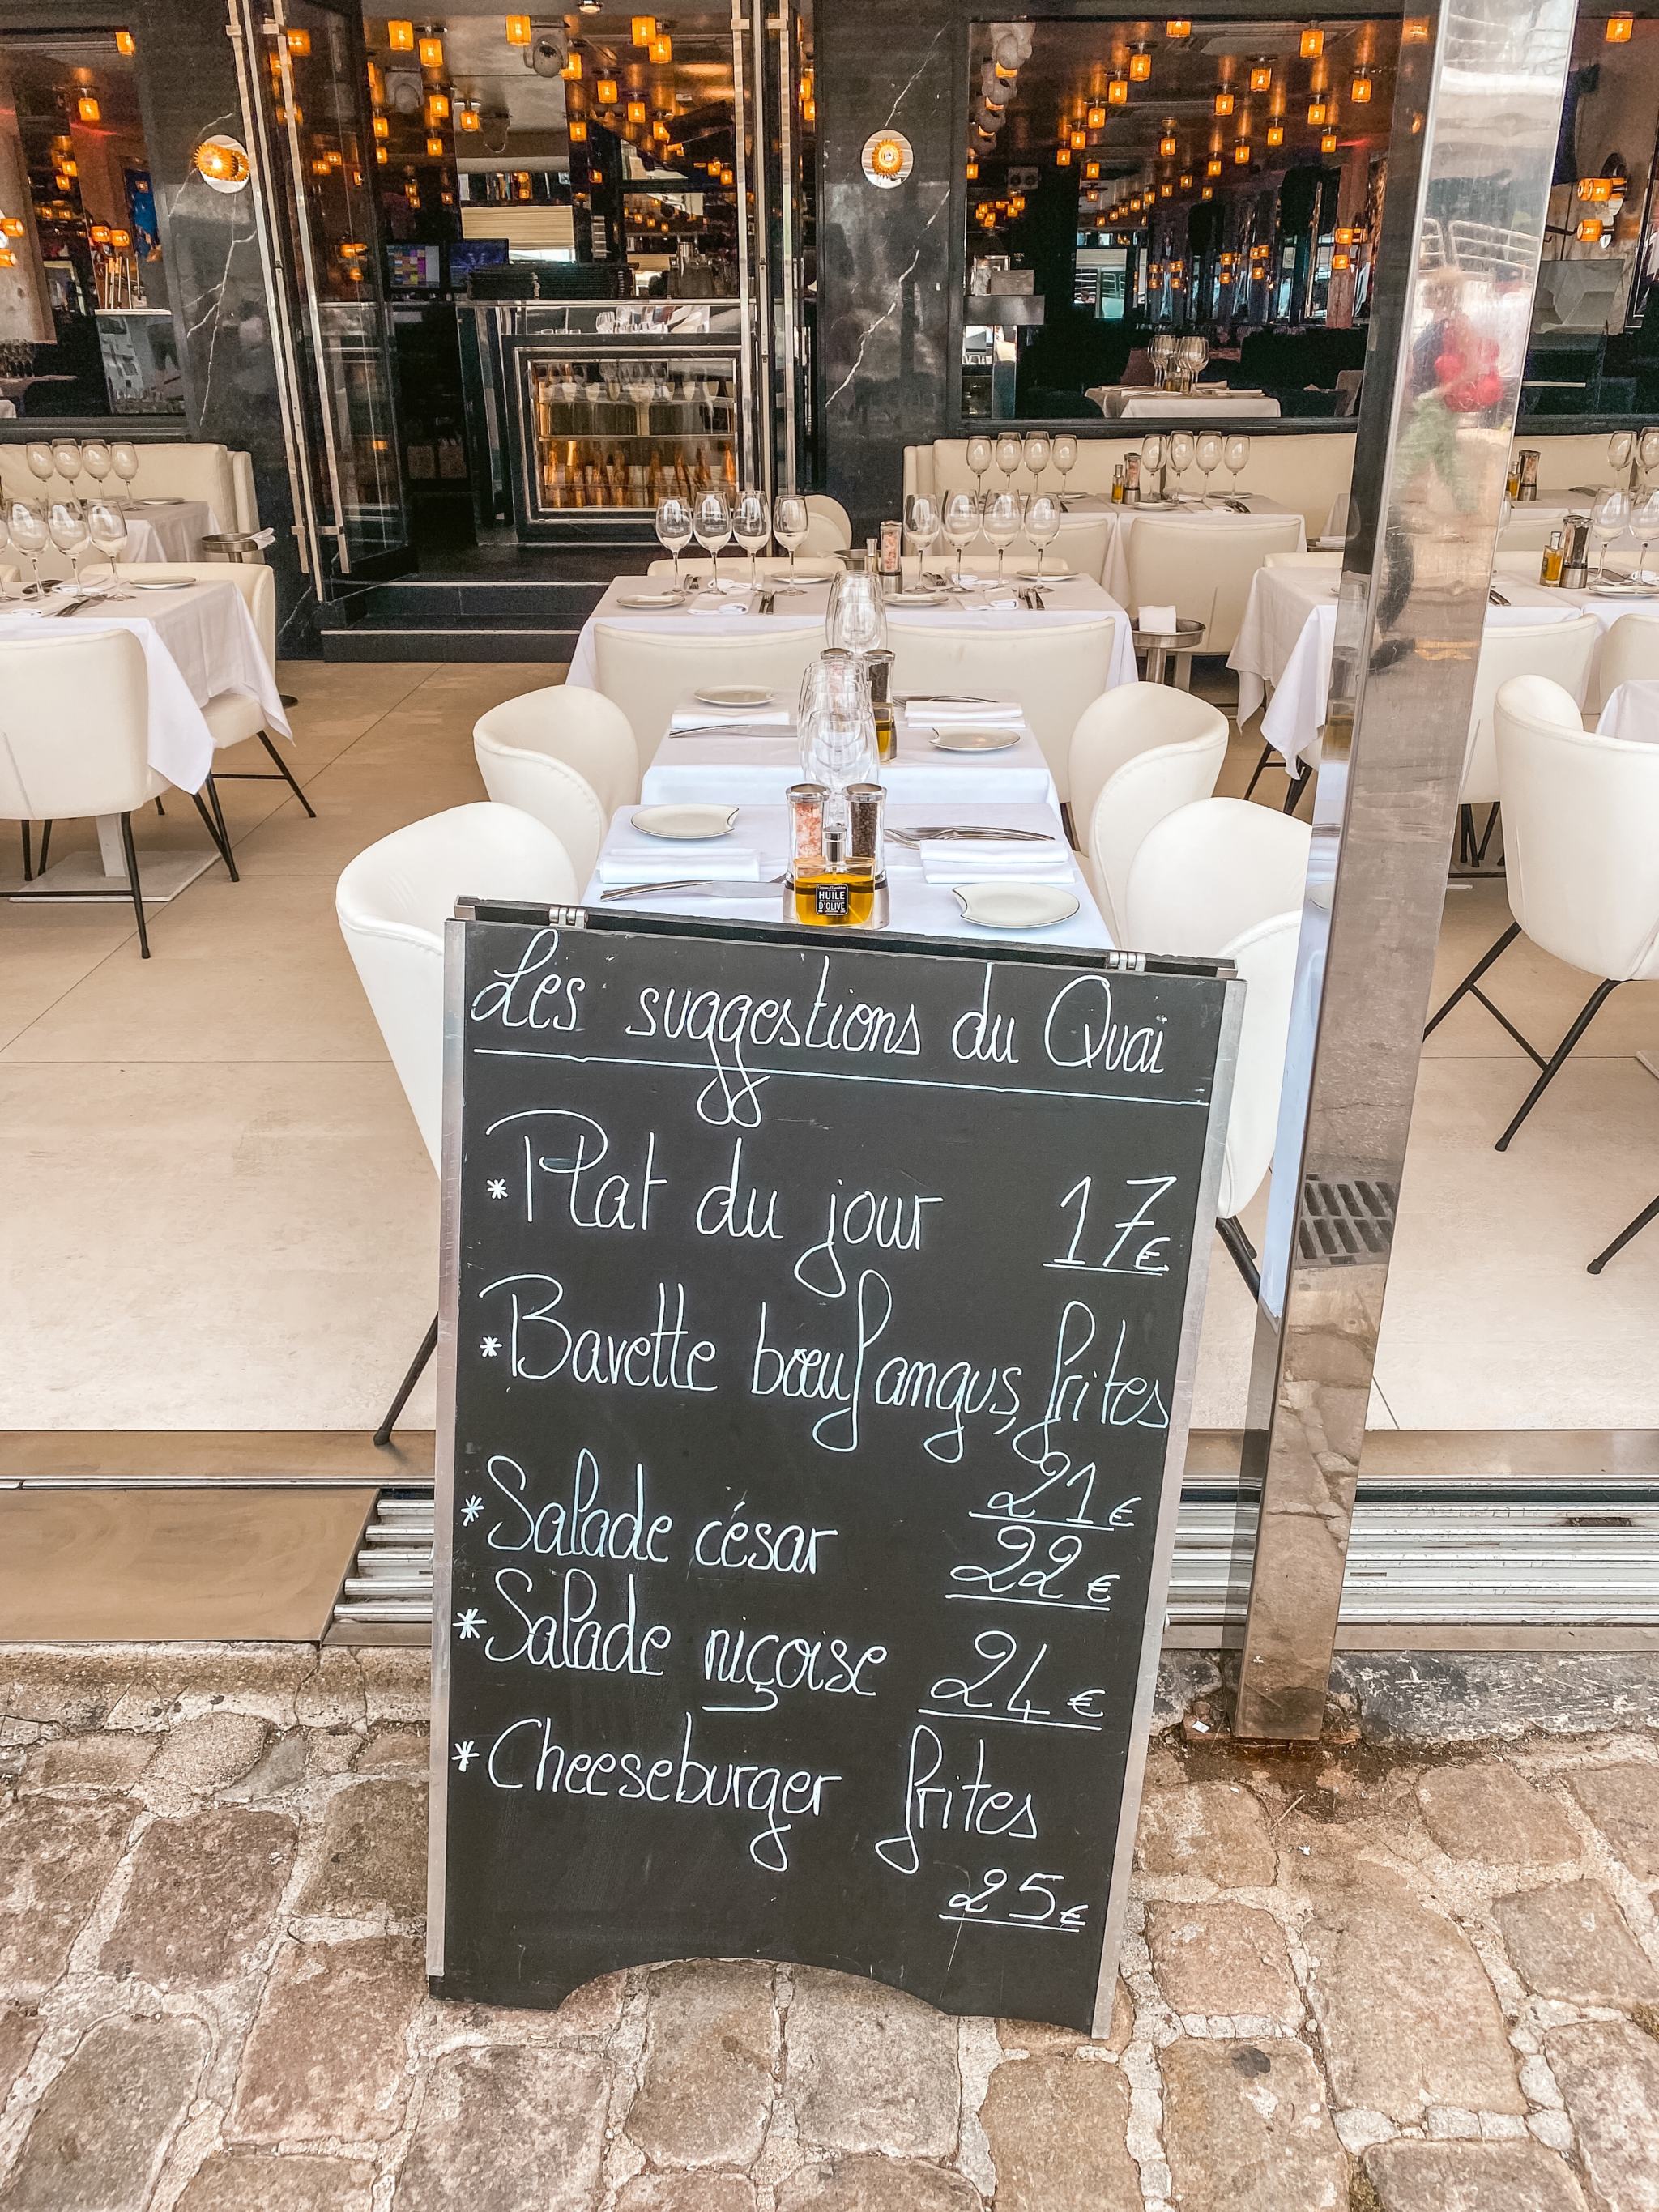 HUILE
D'OLIVE
Les suggestions du Quai
* Plat du jour 17€
* Bavette bœuf angus, frites
21€
* Salade césar 22€
* Salade niçoise 24€
* Cheeseburger frites
25€